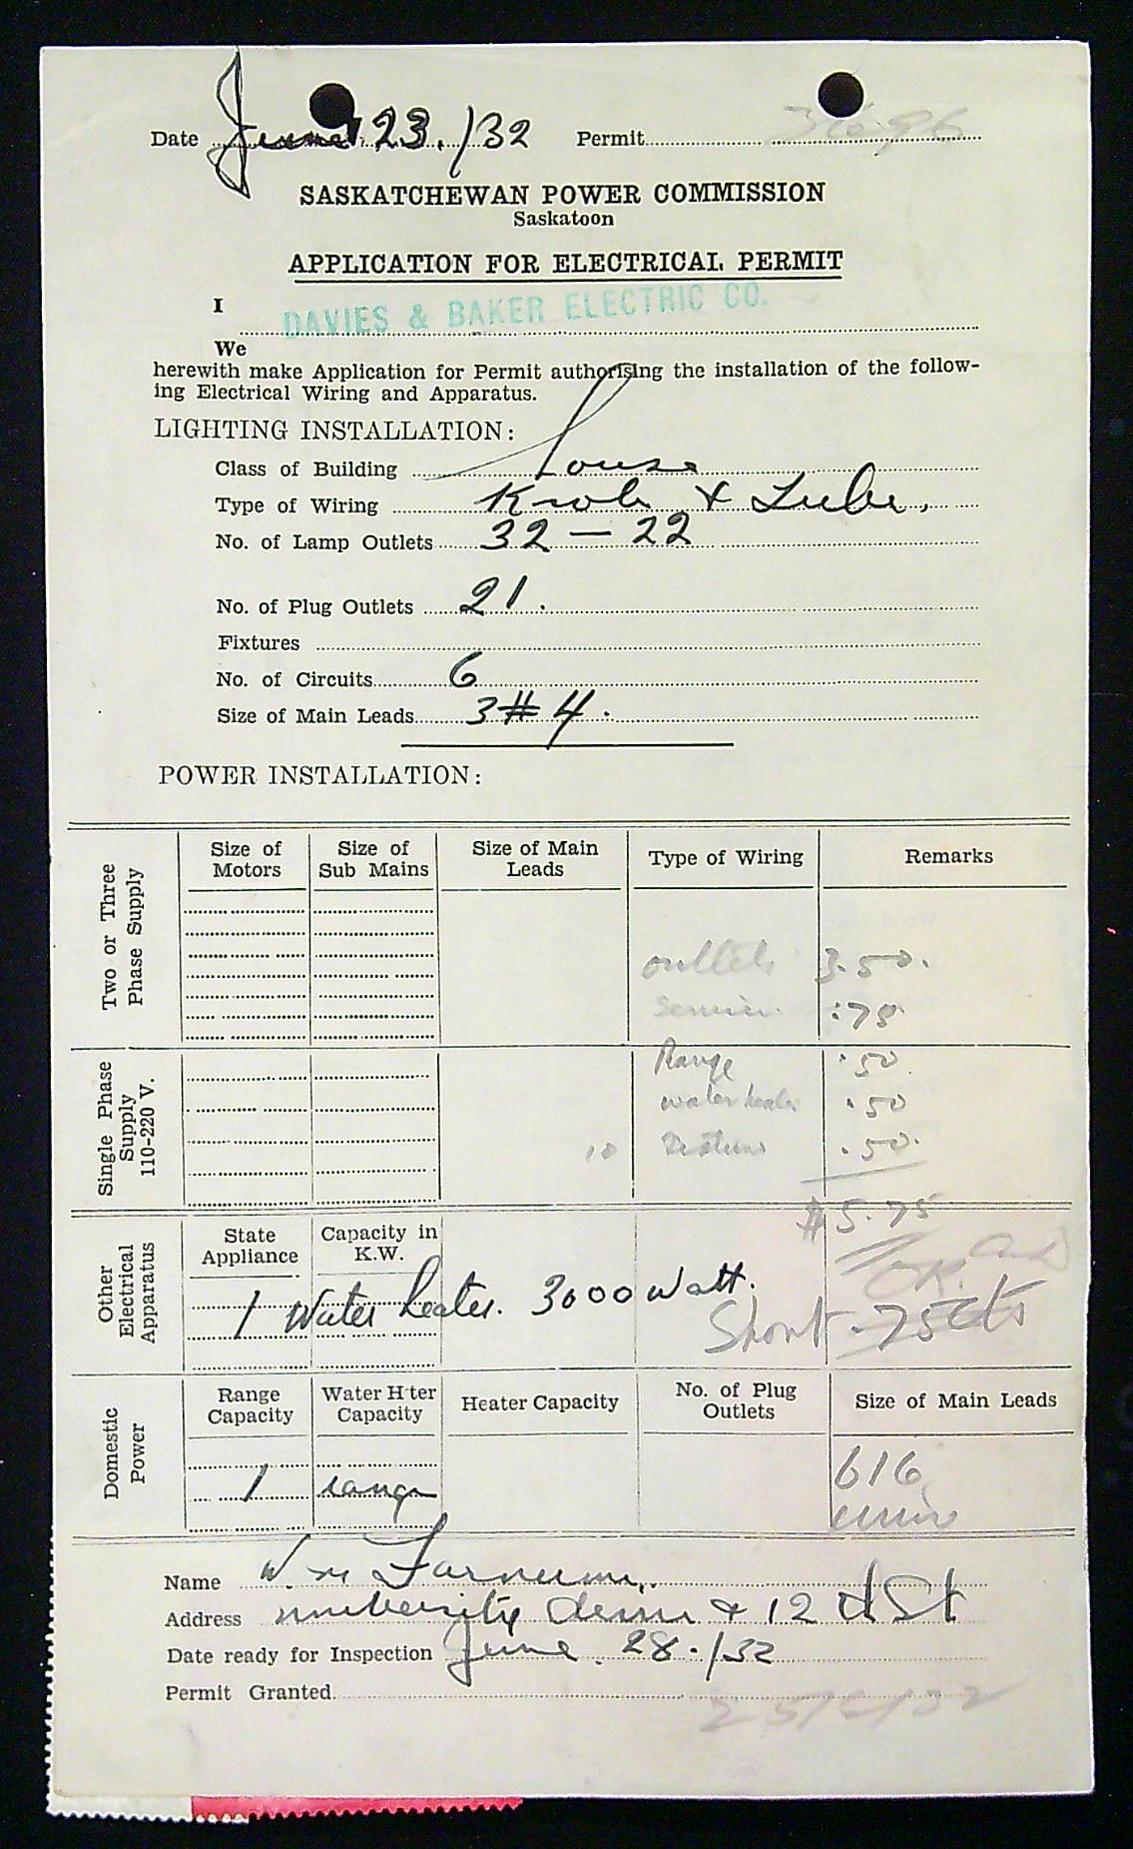 Date June 23./32 Permit 3696
SASKATCHEWAN POWER COMMISSION
Saskatoon
APPLICATION FOR ELECTRICAL PERMIT
I
DAVIES & BAKER ELECTRIC CO.
We
herewith make Application for Permit authorising the installation of the follow-
ing Electrical Wiring and Apparatus.
LIGHTING INSTALLATION:
Class of Building house
Type of Wiring Knob & Tube,
No. of Lamp Outlets 32 — 22
No. of Plug Outlets 21.
Fixtures
No. of Circuits 6
Size of Main Leads 3 # 4.
POWER INSTALLATION:
Two or Three
Phase Supply
Size of
Motors
Size of
Sub Mains
Size of Main
Leads
Type of Wiring
Remarks
outlets 3.50.
Service .75
Single Phase
Supply
110-220 V.
Range .50
water heater .50
10 .50
$5.75
Other
Electrical
Apparatus
State
Appliance
Capacity in
K.W.
1 Water heater. 3000 watt.
OK.
Short .75 cts
Domestic
Power
Range
Capacity
Water H'ter
Capacity
Heater Capacity
No. of Plug
Outlets
Size of Main Leads
1 range
616
Name Wm Farnum
Address university drive & 12 th St
Date ready for Inspection June. 28./32
Permit Granted 25/6/32